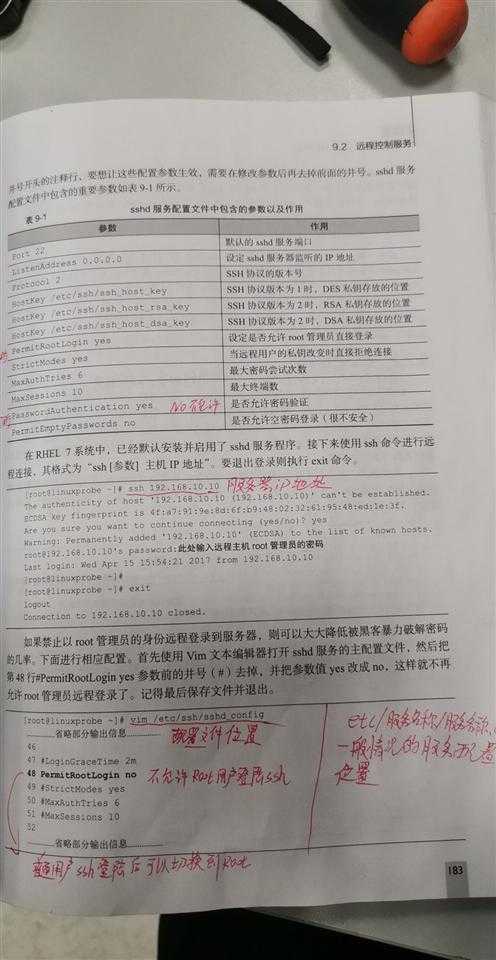 9.2 远程控制服务
井号开头的注释行、要想让这些配置参数生效，需要在修改参数后再去掉前面的井号。sshd 服务
配置文件中包含的重要参数如表 9-1 所示。
表 9-1 sshd 服务配置文件中包含的参数以及作用
参数 作用
Port 22 默认的 sshd 服务端口
ListenAddress 0.0.0.0 设定 sshd 服务器监听的 IP 地址
Protocol 2 SSH 协议的版本号
HostKey /etc/ssh/ssh_host_key SSH 协议版本为 1 时，DES 私钥存放的位置
HostKey /etc/ssh/ssh_host_rsa_key SSH 协议版本为 2 时，RSA 私钥存放的位置
HostKey /etc/ssh/ssh_host_dsa_key SSH 协议版本为 2 时，DSA 私钥存放的位置
PermitRootLogin yes 设定是否允许 root 管理员直接登录
StrictModes yes 当远程用户的私钥改变时直接拒绝连接
MaxAuthTries 6 最大密码尝试次数
MaxSessions 10 最大终端数
PasswordAuthentication yes NO不允许 是否允许密码验证
PermitEmptyPasswords no 是否允许空密码登录（很不安全）
在 RHEL 7 系统中，已经默认安装并启用了 sshd 服务程序。接下来使用 ssh 命令进行远
程连接，其格式为“ssh [参数] 主机 IP 地址”。要退出登录则执行 exit 命令。
[root@linuxprobe ~]# ssh 192.168.10.10 服务器IP地址
The authenticity of host '192.168.10.10 (192.168.10.10)' can't be established.
ECDSA key fingerprint is 4f:a7:91:9e:8d:6f:b9:48:02:32:61:95:48:ed:1e:3f.
Are you sure you want to continue connecting (yes/no)? yes
Warning: Permanently added '192.168.10.10' (ECDSA) to the list of known hosts.
root@192.168.10.10's password:此处输入远程主机 root 管理员的密码
Last login: Wed Apr 15 15:54:21 2017 from 192.168.10.10
[root@linuxprobe ~]#
[root@linuxprobe ~]# exit
logout
Connection to 192.168.10.10 closed.
如果禁止以 root 管理员的身份远程登录到服务器，则可以大大降低被黑客暴力破解密码
的几率。下面进行相应配置。首先使用 Vim 文本编辑器打开 sshd 服务的主配置文件，然后把
第 48 行#PermitRootLogin yes 参数前的井号（#）去掉，并把参数值 yes 改成 no，这样就不再
允许 root 管理员远程登录了。记得最后保存文件并退出。
[root@linuxprobe ~]# vim /etc/ssh/sshd_config
………………省略部分输出信息………………
配置文件位置
46
47 #LoginGraceTime 2m
48 PermitRootLogin no 不允许Root用户登陆ssh
49 #StrictModes yes
50 #MaxAuthTries 6
51 #MaxSessions 10
52
………………省略部分输出信息………………
etc/服务名称/服务名称
一般情况的服务配置
位置
普通用户ssh登陆后可以切换到Root
183